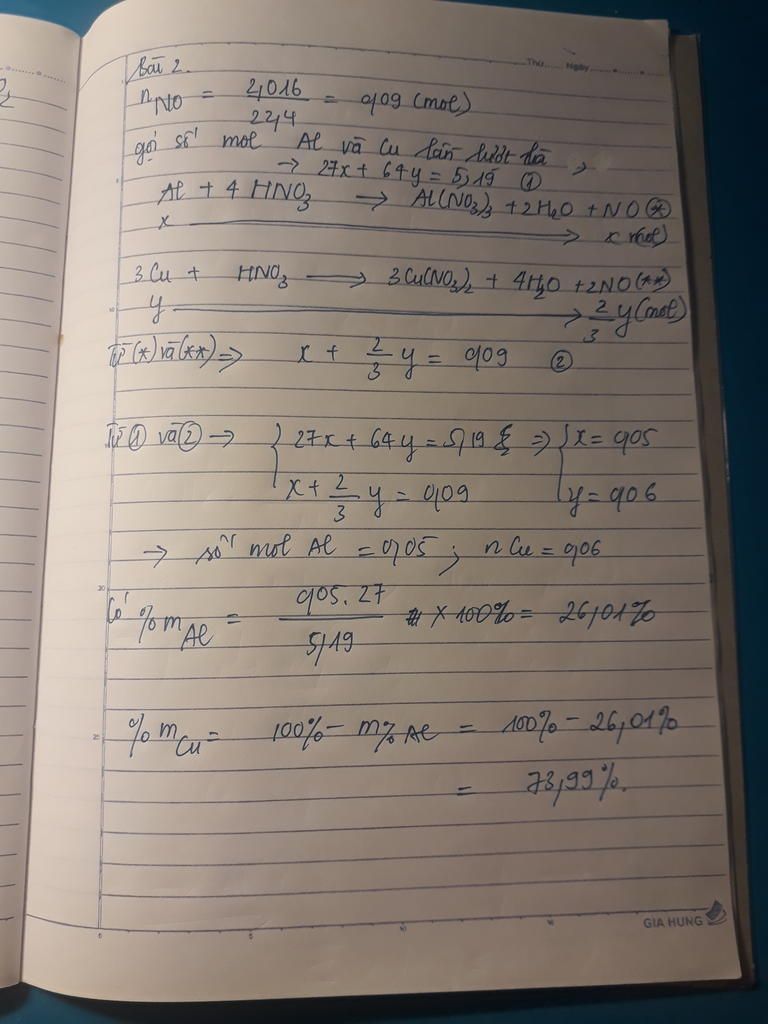 Thứ Ngày
Bài 2.
n NO = 2,016 / 22,4 = 0,09 (mol)
gọi số mol Al và Cu lần lượt là
→ 27x + 64y = 5,19 ①
Al + 4 HNO3 → Al(NO3)3 + 2H2O + NO (*)
x → x (mol)
3Cu + HNO3 → 3Cu(NO3)2 + 4H2O + 2NO (**)
y → 2/3 y (mol)
Từ (*) và (**) => x + 2/3 y = 0,09 ②
Từ ① và ② → { 27x + 64y = 5,19 => { x = 0,05
x + 2/3 y = 0,09 y = 0,06
→ số mol Al = 0,05 ; n Cu = 0,06
Có % m Al = 0,05.27 / 5,19 x 100% = 26,01%
% m Cu = 100% - m% Al = 100% - 26,01%
= 73,99%.
GIA HUNG